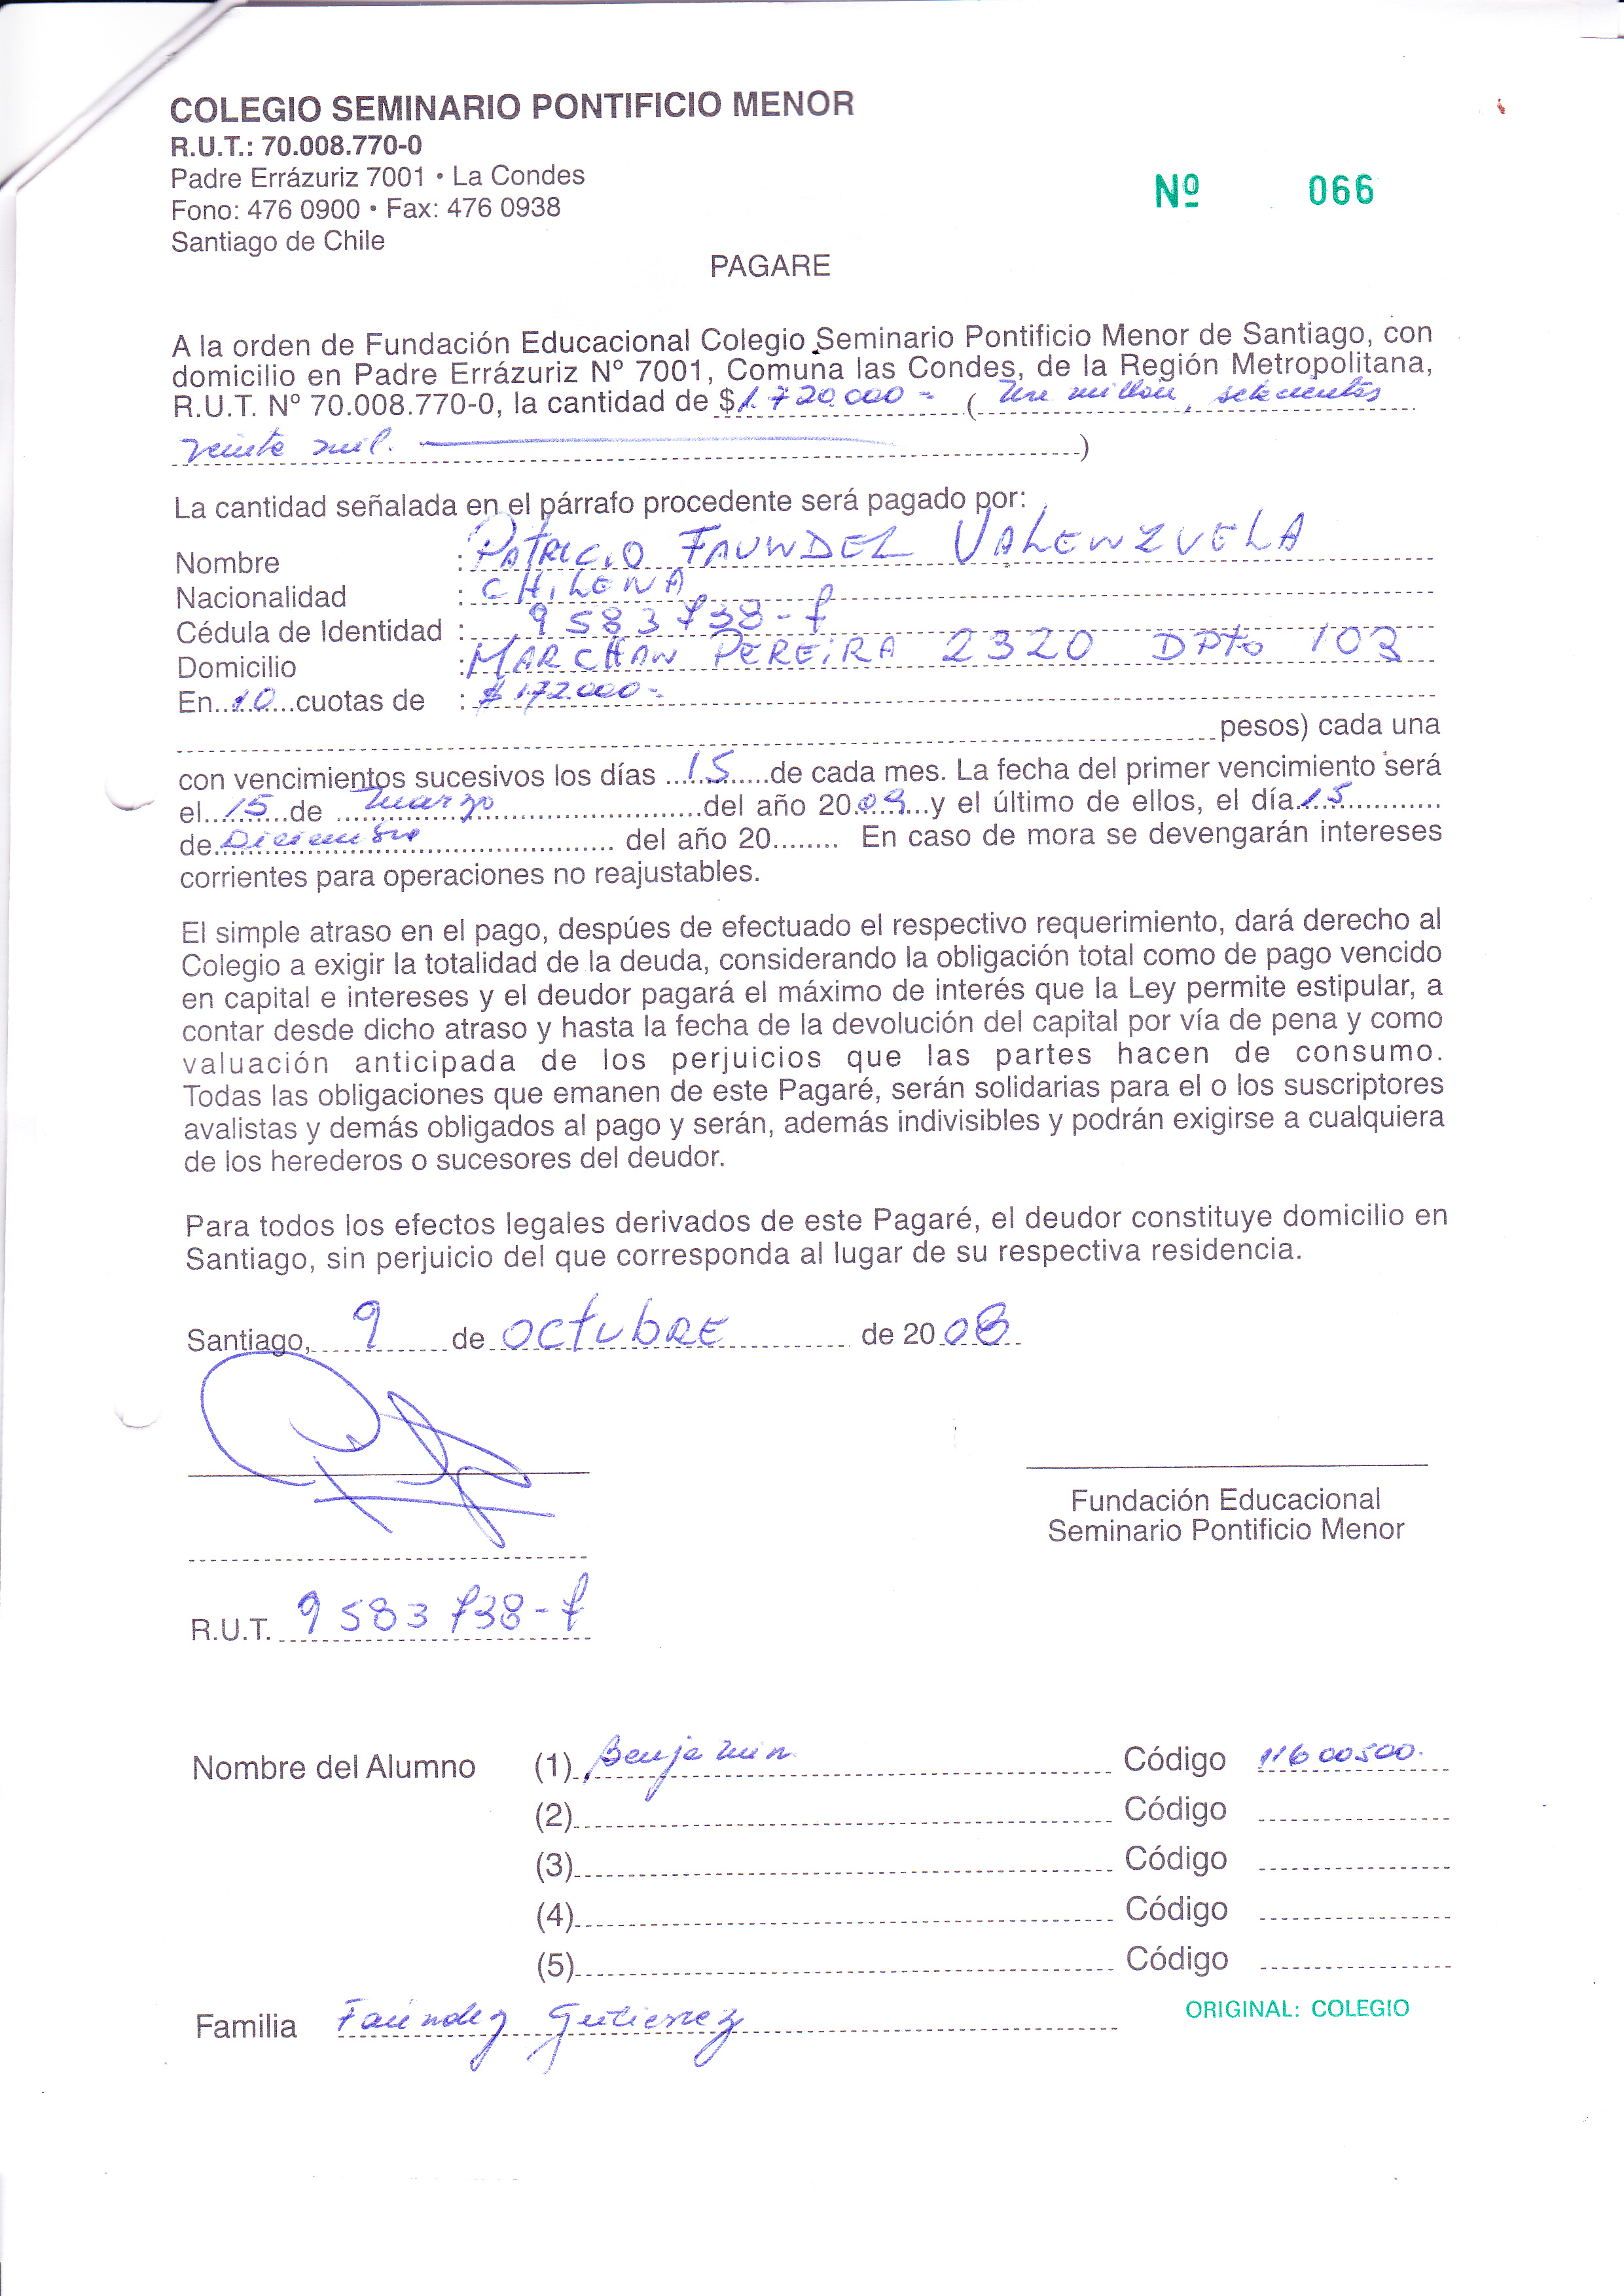 COLEGIO SEMINARIO PONTIFICIO MENOR
R.U.T.: 70.008.770-0
Padre Errázuriz 7001 • La Condes
Fono: 476 0900 • Fax: 476 0938
Santiago de Chile
Nº 066
PAGARE
A la orden de Fundación Educacional Colegio Seminario Pontificio Menor de Santiago, con
domicilio en Padre Errázuriz Nº 7001, Comuna las Condes, de la Región Metropolitana,
R.U.T. Nº 70.008.770-0, la cantidad de $ 1.720.000 = ( Un millon, setecientos
veinte mil. )
La cantidad señalada en el párrafo procedente será pagado por:
Nombre : PATRICIO FAUNDEZ VALENZUELA
Nacionalidad : CHILENA
Cédula de Identidad : 9583738-7
Domicilio : MARCHAN PEREIRA 2320 DPto 103
En 10 cuotas de : $ 172.000=
pesos) cada una
con vencimientos sucesivos los días 15 de cada mes. La fecha del primer vencimiento será
el 15 de marzo del año 2009 y el último de ellos, el día 15
de Diciembre del año 20........ En caso de mora se devengarán intereses
corrientes para operaciones no reajustables.
El simple atraso en el pago, despúes de efectuado el respectivo requerimiento, dará derecho al
Colegio a exigir la totalidad de la deuda, considerando la obligación total como de pago vencido
en capital e intereses y el deudor pagará el máximo de interés que la Ley permite estipular, a
contar desde dicho atraso y hasta la fecha de la devolución del capital por vía de pena y como
valuación anticipada de los perjuicios que las partes hacen de consumo.
Todas las obligaciones que emanen de este Pagaré, serán solidarias para el o los suscriptores
avalistas y demás obligados al pago y serán, además indivisibles y podrán exigirse a cualquiera
de los herederos o sucesores del deudor.
Para todos los efectos legales derivados de este Pagaré, el deudor constituye domicilio en
Santiago, sin perjuicio del que corresponda al lugar de su respectiva residencia.
Santiago, 9 de OCTUBRE de 2008
Fundación Educacional
Seminario Pontificio Menor
R.U.T. 9583738-7
Nombre del Alumno (1) Benjamin Código 11600500.
(2) Código
(3) Código
(4) Código
(5) Código
Familia Faúndez Gutierrez
ORIGINAL: COLEGIO